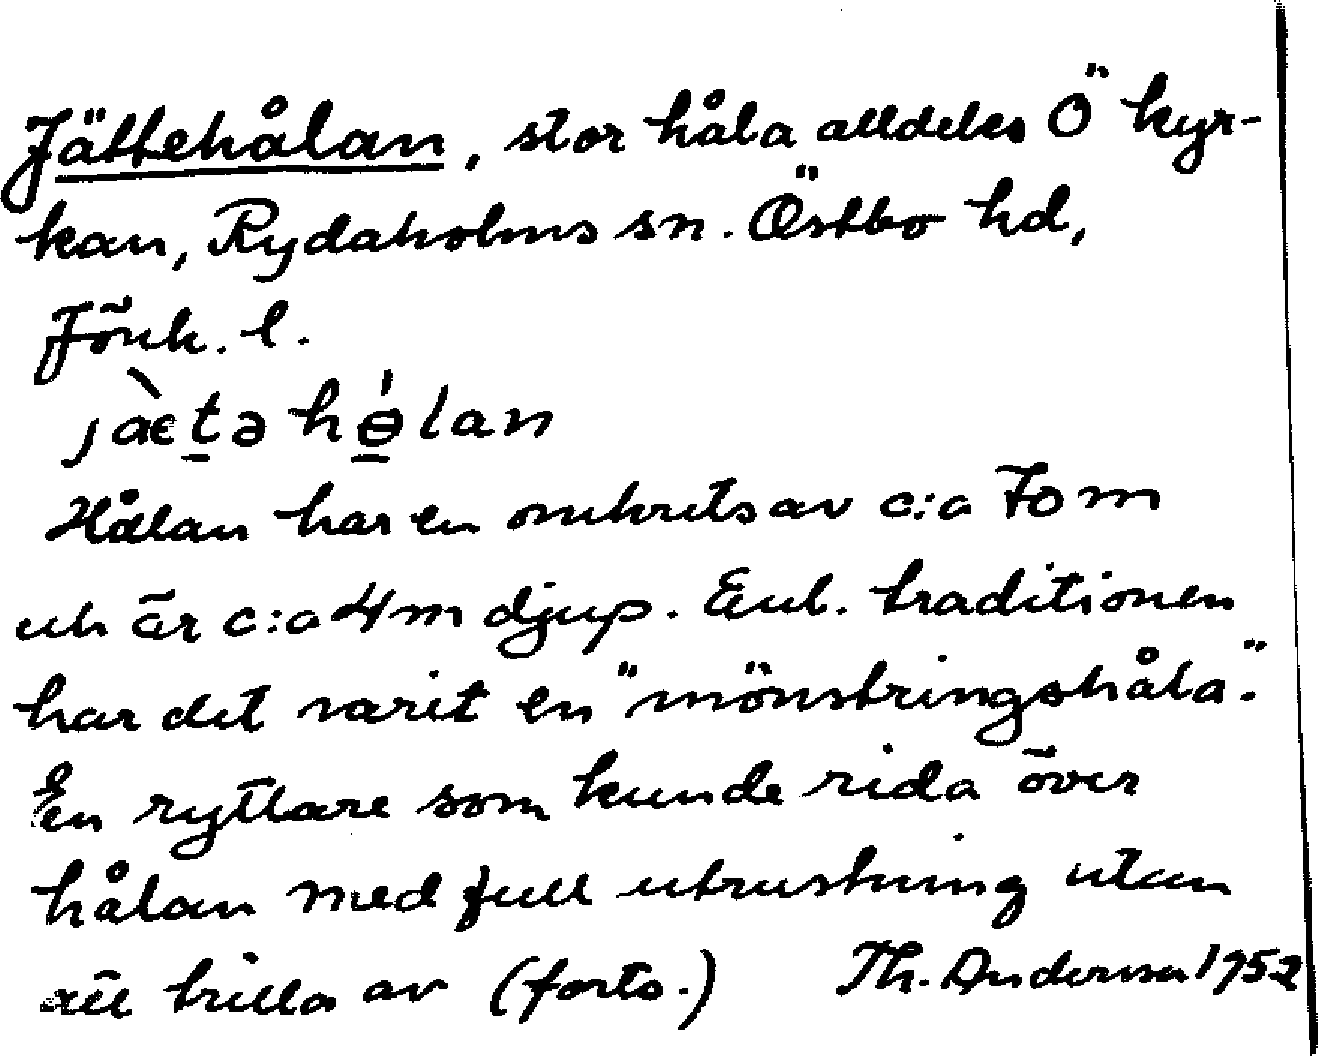 Jättehålan, stor håla alldeles Ö kyr-
kan, Rydaholms sn. Östbo hd,
Jönk. l.
jàetə hɵ́lan
Hålan har en omkrets av c:a 70 m
och är c:a 4 m djup. Enl. traditionen
har det varit en "mönstringshåla".
En ryttare som kunde rida över
hålan med full utrustning utan
att trilla av (forts.) Th. Andersson 1952